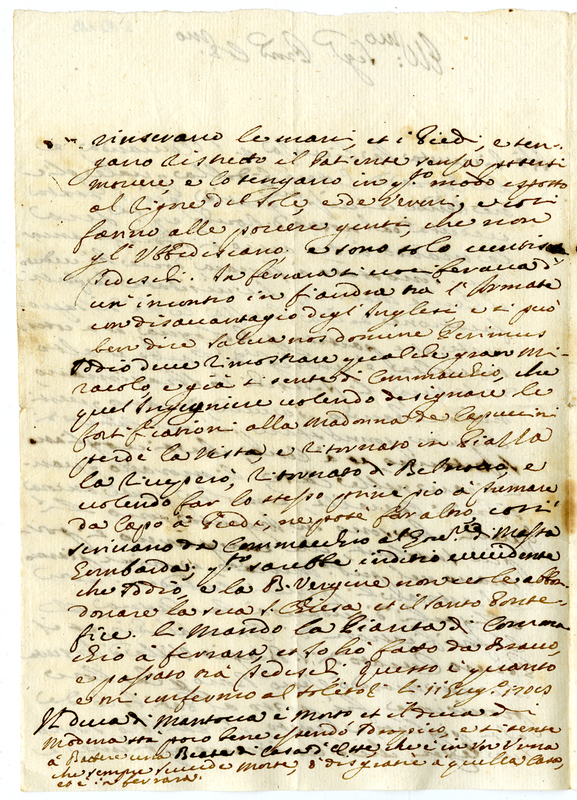 rinserano le mani, et i Piedi, e ten-
gano ristretto il Patiente senza potersi
movere e lo tengano in q.to modo esposto
al rigore del sole, e de Venti, e cosi
fanno alle povere genti, che non
gl' Ubbidiscano. e sono solo
Tedeschi. In ferrara si
un' incontro in fiandra trà l' Armate
con disavantagio degl' Inglesi e si può
ben dire salva nos domine Perimus
Iddio deve dimostrare qualche gran Mi-
racolo, e già si sente di Commacchio, che
quel Ingegniere volendo designare le
fortificationi alla Madonna de Capuccini
perdè la Vista, e ritornato in Piazza
la ricuperò, ritornato di e
volendo far lo stesso principiò à tremare
da Capo à Piedi, ne potè far altro cosi
scrivano da Commacchio al di Massa
Lombarda; q.to sarebbe inditio evvidente
che Iddio, e la B. Vergine non vole abban
donare la sua S. Chiesa, et il Santo Ponte-
fice. li Mando la Pianta di Comma
chio à ferrara, et lo hò fatto da Bravo,
e passato trà Tedeschi. Questo è quanto
e mi confermo al solito li 11 Lug.o 1708
Il Duca di Mantova è Morto, et il Duca di
Modena stà poco bene essendo Idropico, e si sente
à una Beata di Casa d'Este, che è in
che sempre succede Morte, ò disgratie a quella Casa,
et è in ferrara.